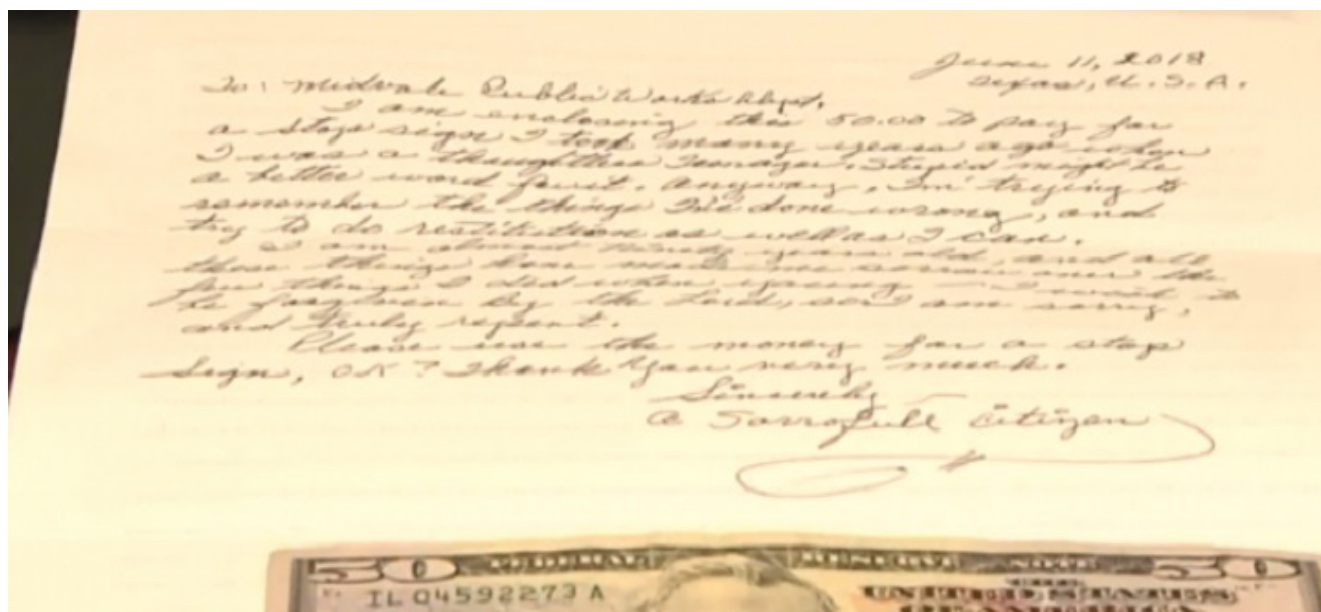 June 11, 2018
Texas, U.S.A.
To: Midvale Public Works Dept.
I am enclosing this 50.00 to pay for
a stop sign I took many years ago when
I was a thoughtless teenager. Stupid might be
a better word for it. Anyway, I'm trying to
remember the things I've done wrong, and
try to do restitution as well as I can.
I am almost ninety years old, and all
those things have made me sorrow over the
few things I did when young — I want to
be forgiven by the Lord, so I am sorry,
and truly repent.
Please use the money for a stop
sign, OK? Thank You very much.
Sincerely
a Sorrofull Citizen
50 FEDERAL RESERVE NOTE 50
IL 04592273 A
UNITED STATES